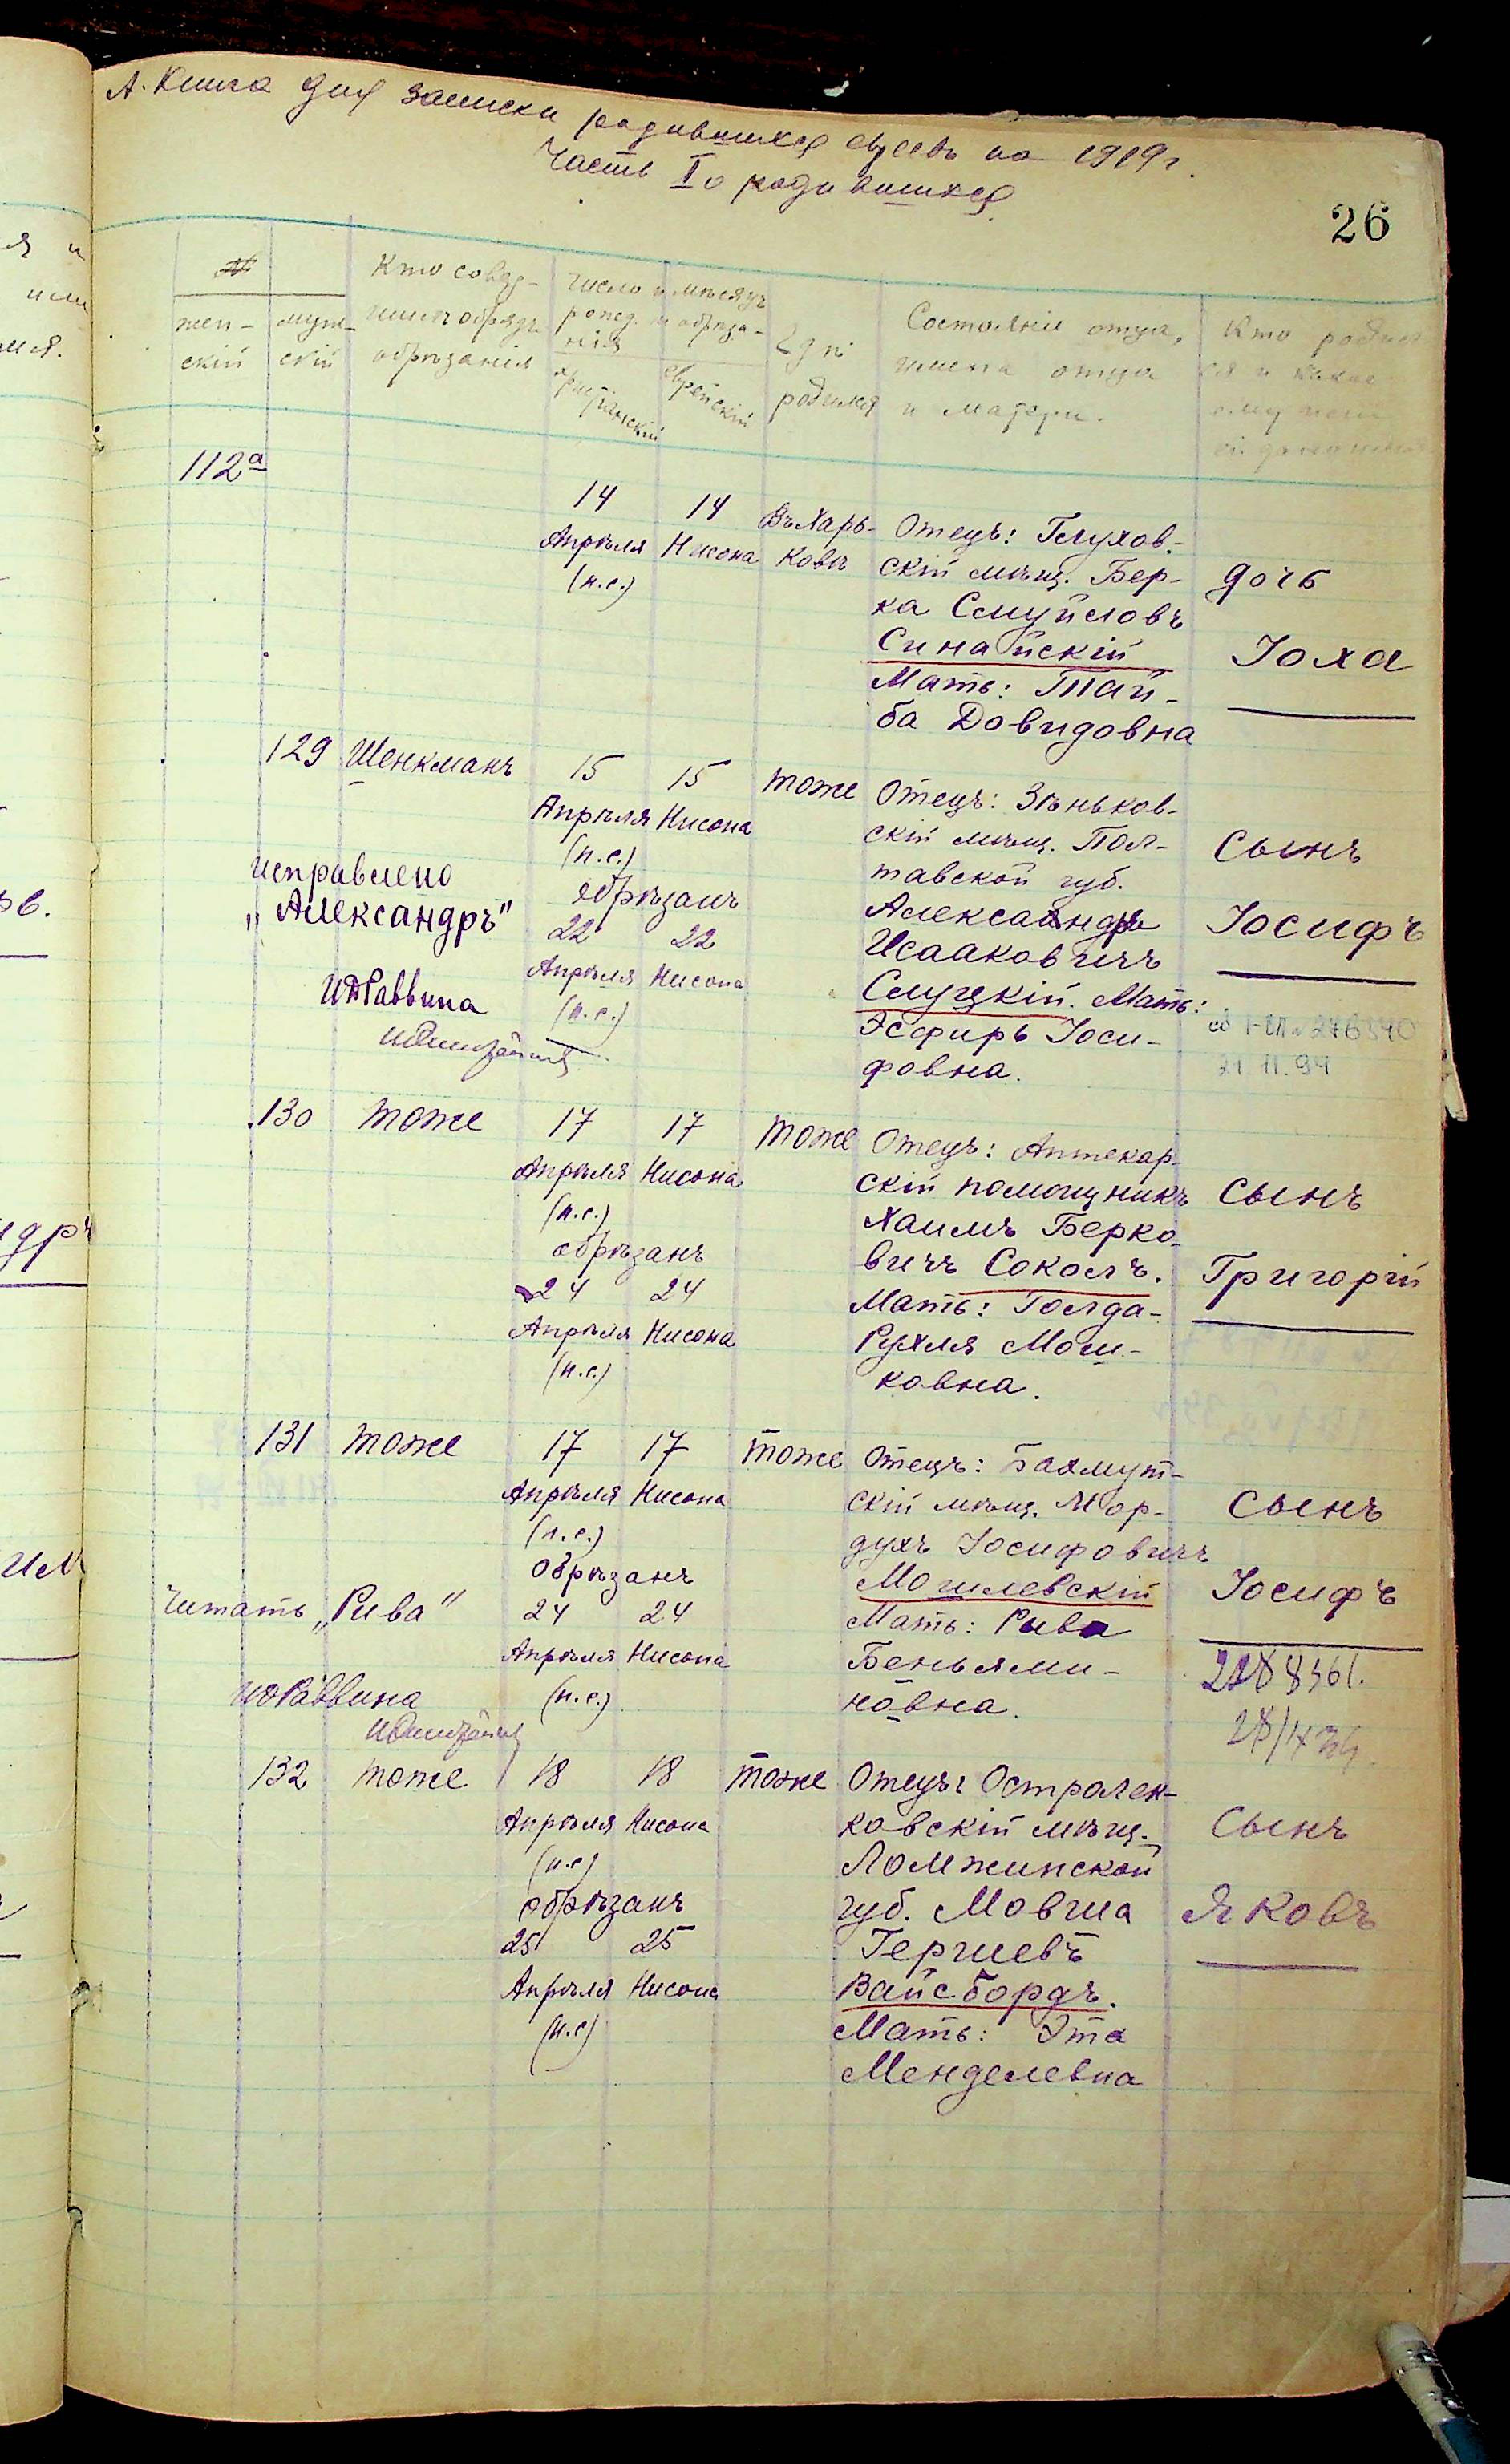 А. Книга для записки родившихся евреевъ на 1919 г.
Часть I о родившихся
26
№
жен-
скій
муж-
скій
Кто совер-
шилъ обрядъ
обрѣзанія
Число и мѣсяцъ
рожд. и обрѣза-
нія
христіанскій
еврейскій
Гдѣ
родился
Состояніе отца,
имена отца
и матери.
Кто родил-
ся и какое
ему или
ей дано
112а
14
Апрѣля
(н.с.)
14
Нисона
Въ Харь-
ковѣ
Отецъ: Глухов-
скій мѣщ. Бер-
ка Смуйловъ
Синайскій
Мать: Тай-
ба Довидовна
дочь
Іоха
129
Шенкманъ
15
Апрѣля
(н.с.)
15
Нисона
обрѣзанъ
22
Апрѣля
(н.с.)
22
Нисона
тоже
Отецъ: Зѣньков-
скій мѣщ. Пол-
тавской губ.
Александръ
Исааковичъ
Слуцкій. Мать:
Эсфирь Іоси-
фовна.
Сынъ
Іосифъ
276340
21.11.94
исправлено
„Александръ"
ИД Раввина
130
тоже
17
Апрѣля
(н.с.)
17
Нисона
обрѣзанъ
24
Апрѣля
(н.с.)
24
Нисона
тоже
Отецъ: Аптекар-
скій помощникъ
Хаимъ Берко-
вичъ Соколъ.
Мать: Голда-
Рухля Мош-
ковна.
Сынъ
Григорій
131
тоже
17
Апрѣля
(н.с.)
17
Нисона
обрѣзанъ
24
Апрѣля
(н.с.)
24
Нисона
тоже
Отецъ: Бахмут-
скій мѣщ. Мор-
духъ Іосифовичъ
Могилевскій
Мать: Рива
Беньями-
новна.
Сынъ
Іосифъ
читать „Рива"
ИД Раввина
132
тоже
18
Апрѣля
(н.с)
18
Нисона
обрѣзанъ
25
Апрѣля
(н.с)
25
Нисона
тоже
Отецъ: Остролен-
ковскій мѣщ.
Ломжинской
губ. Мовша
Гершевъ
Вайсбордъ.
Мать: Эта
Менделевна
Сынъ
Яковъ